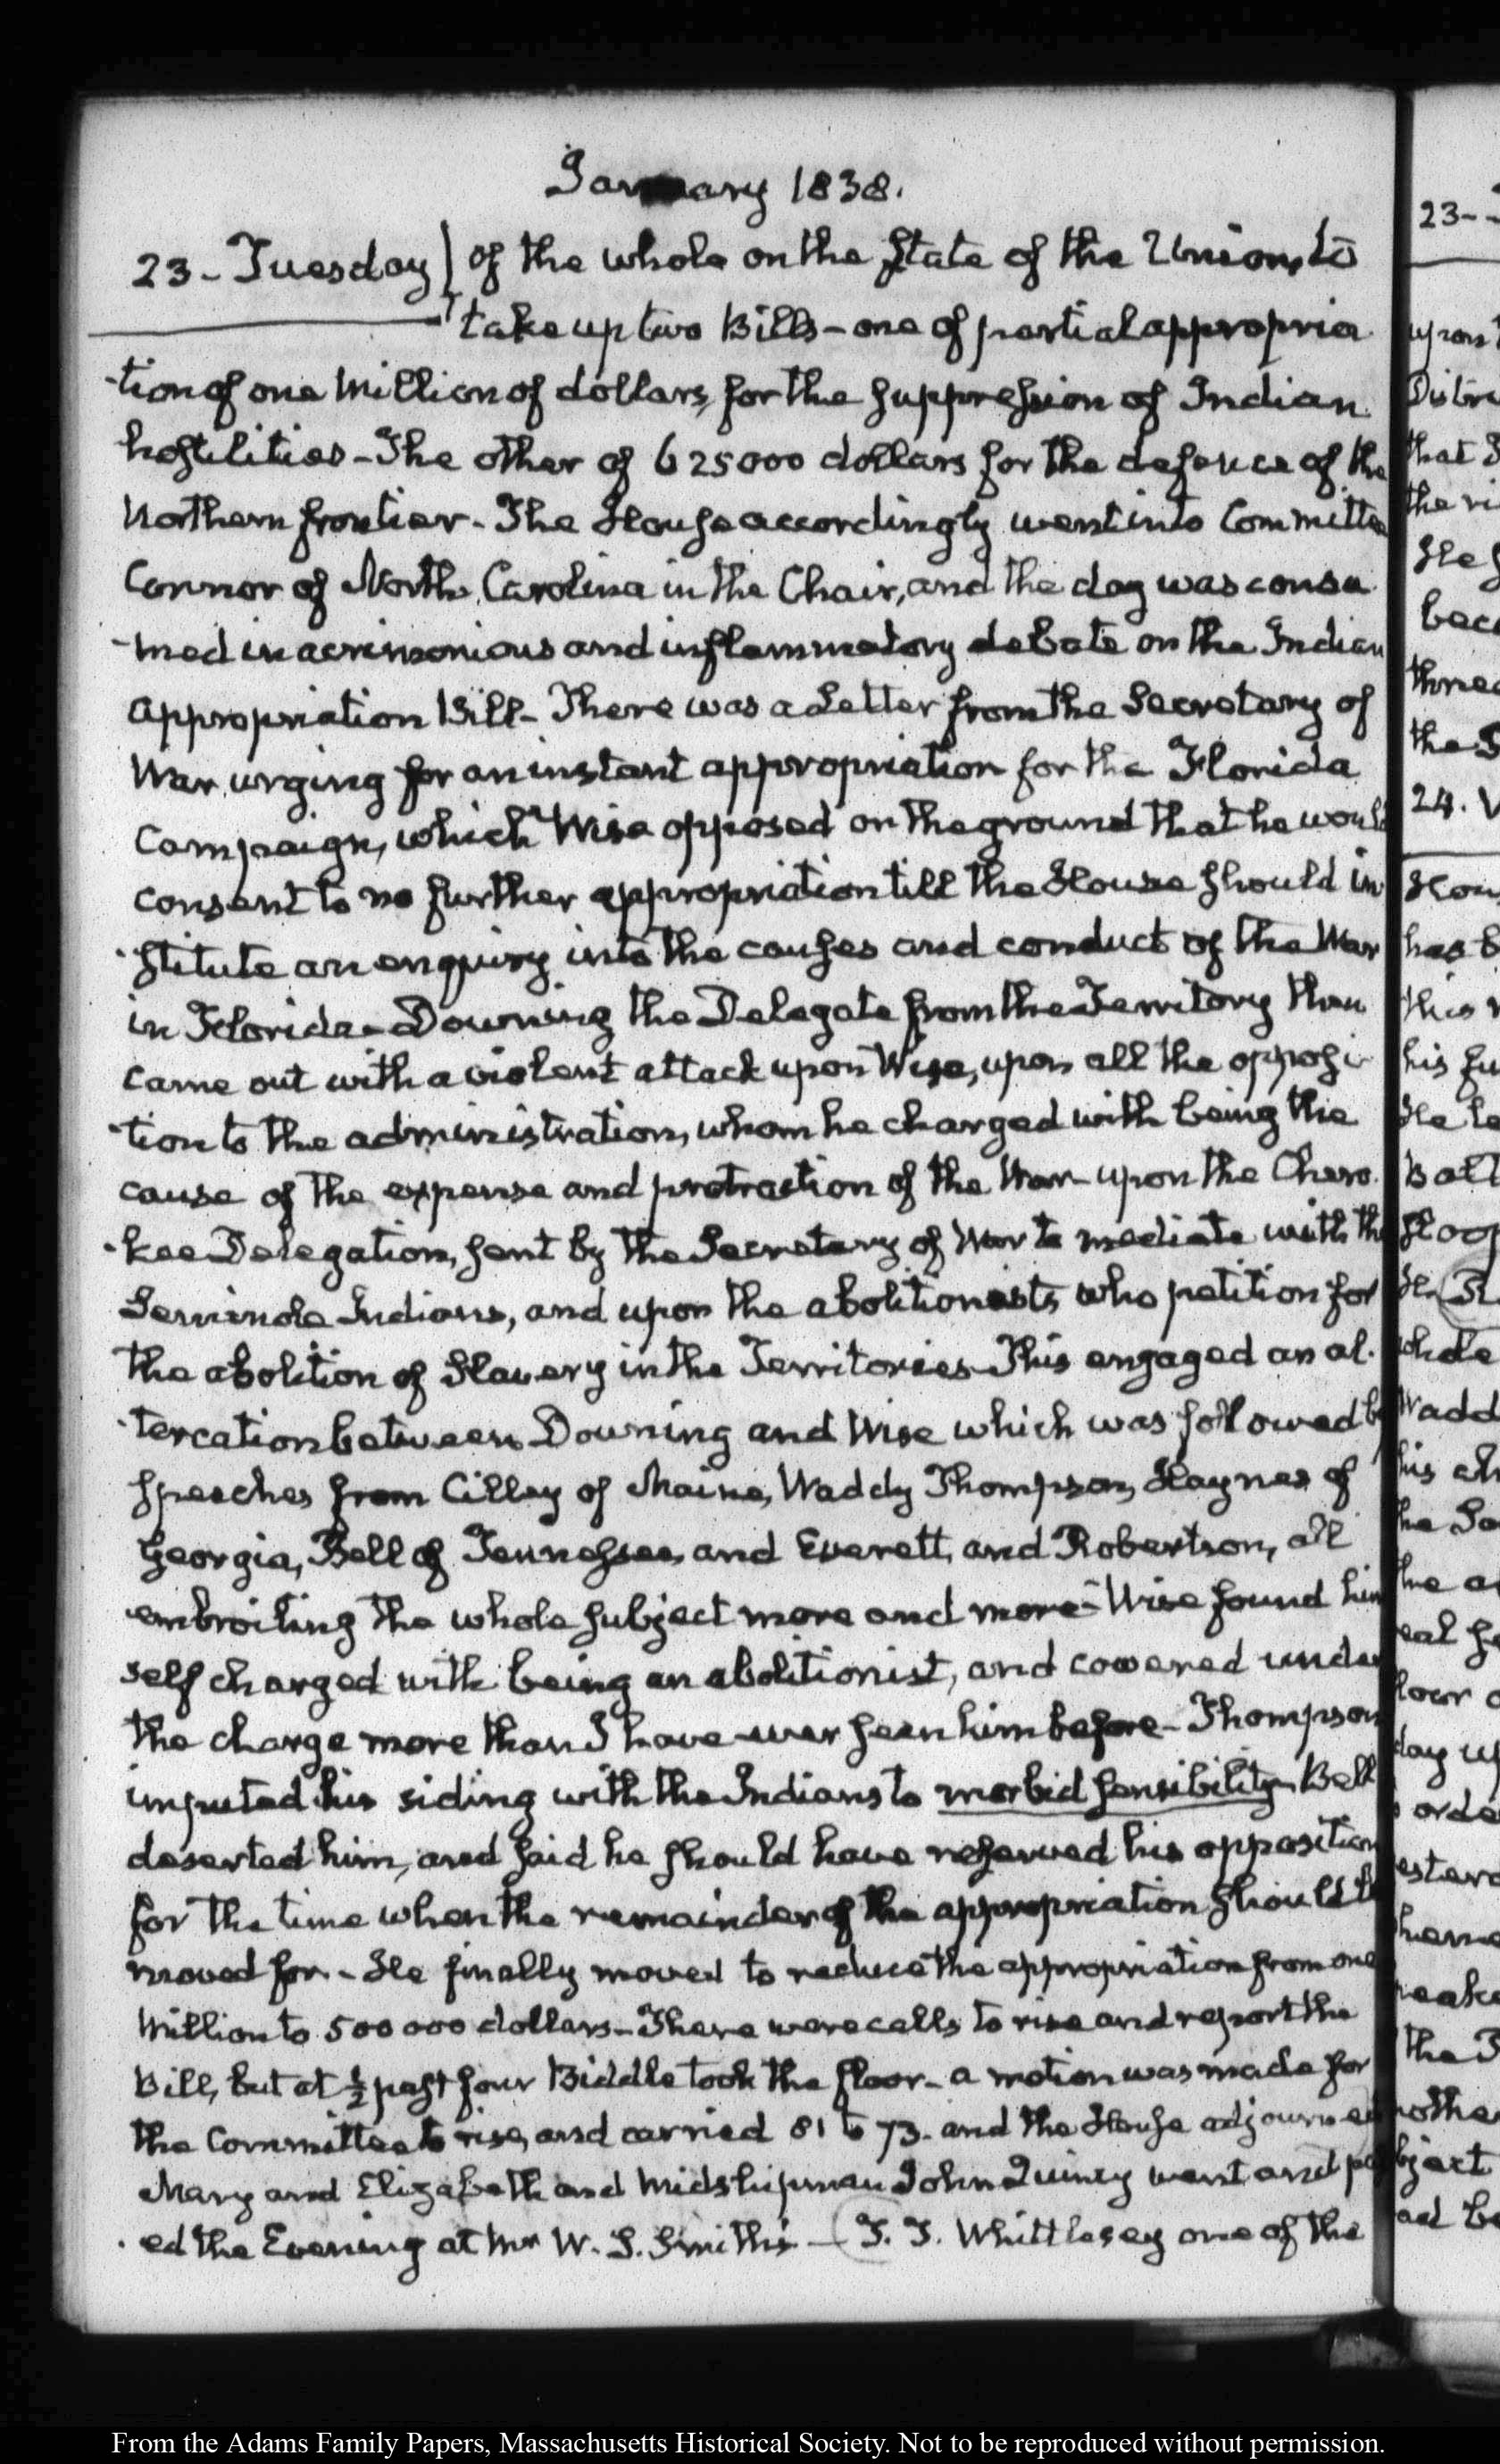 January 1838.
23 - Tuesday } of the whole on the State of the Union, to
take up two Bills - one of partial appropria
-tion of one Million of dollars, for the suppression of Indian
hostilities - The other of 625000 dollars for the defence of the
Northern frontier - The House accordingly went into Committee
Connor of North Carolina in the Chair, and the day was consu
-med in acrimonious and inflammatory debate on the Indian
appropriation Bill - There was a Letter from the Secretary of
War, urging for an instant appropriation for the Florida
Campaign, which Wise opposed on the ground that he would
consent to no further appropriation till the House should in
-stitute an enquiry into the causes and conduct of the War
in Florida - Downing the Delegate from the Territory then
came out with a violent attack upon Wise, upon all the opposi
-tion to the administration, whom he charged with being the
cause of the expense and protraction of the War - upon the Chero
-kee Delegation, sent by the Secretary of War to mediate with the
Seminole Indians, and upon the abolitionists who petition for
the abolition of Slavery in the Territories - This engaged an al-
-tercation between Downing and Wise which was followed by
speeches from Cilley of Maine, Waddy Thompson, Haynes of
Georgia, Bell of Tennessee, and Everett, and Robertson, all
embroiling the whole subject more and more - Wise found him
self charged with being an abolitionist, and cowered under
the charge more than I have ever seen him before - Thompson
imputed his siding with the Indians to morbid sensibility - Bell
deserted him, and said he should have reserved his opposition
for the time when the remainder of the appropriation should be
moved for - He finally moved to reduce the appropriation from one
Million to 500000 dollars - There were calls to rise and report the
Bill, but at ½ past four Biddle took the floor - a motion was made for
the Committee to rise, and carried 81 to 73. and the House adjourned
Mary and Elizabeth and Midshipman John Quincy went and pass
-ed the Evening at Mr W. S. Smith's - T. T. Whittlesey one of the
23 -
upon
Distri
that I
the ri
He s
beca
three
the S
24. W
Hou
has b
this
his fu
He
Ball
whole
Wadd
his
he
the
day up
orde
the
othe
bject
ad be
From the Adams Family Papers, Massachusetts Historical Society. Not to be reproduced without permission.